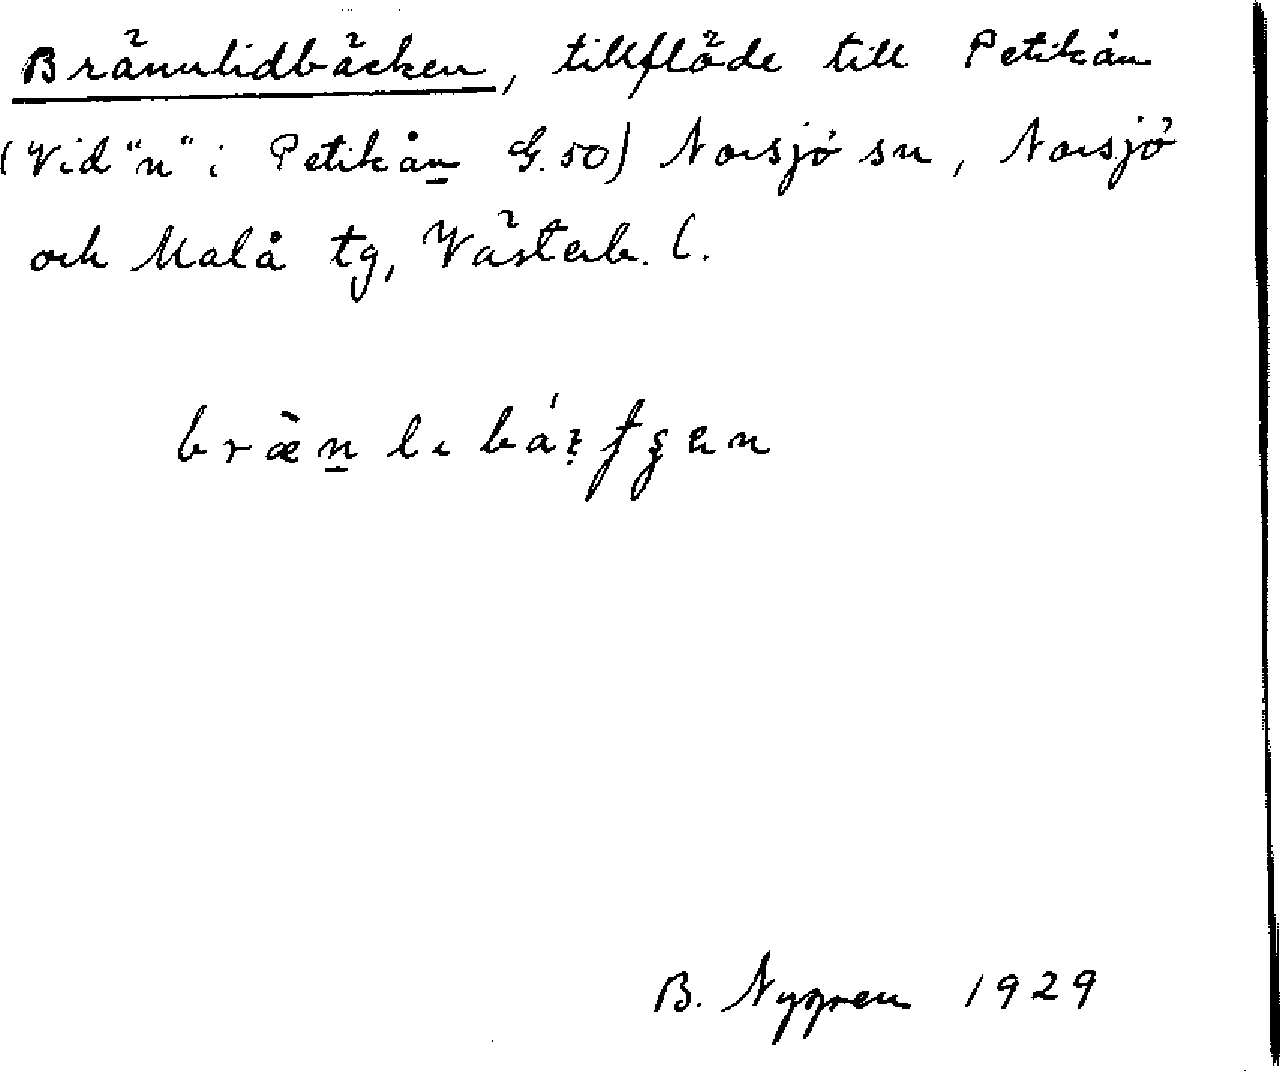 Brännlidbäcken, tillflöde till Petikån
(Vid "n" i Petikån G. 50) Norsjö sn, Norsjö
och Malå tg, Västerb. l.
B. Nygren 1929